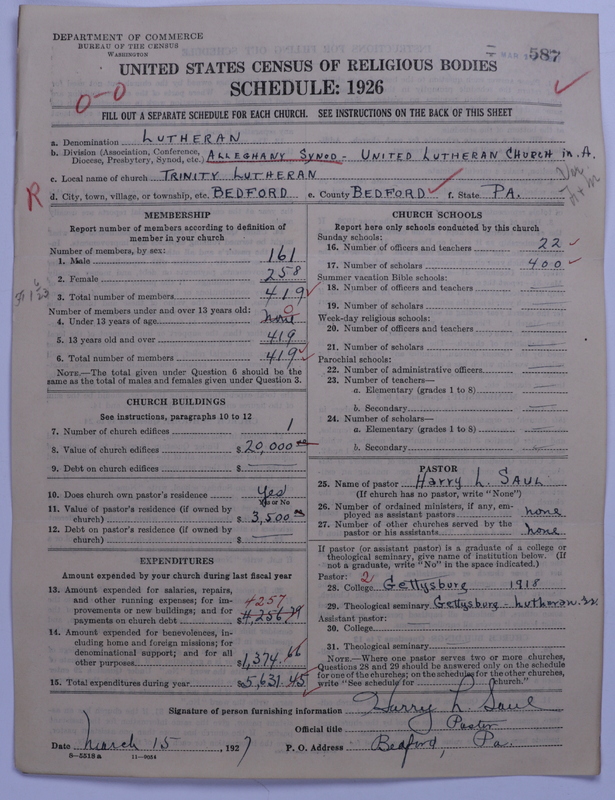 DEPARTMENT OF COMMERCE
BUREAU OF THE CENSUS
WASHINGTON
587
UNITED STATES CENSUS OF RELIGIOUS BODIES
SCHEDULE: 1926
0-0
FILL OUT A SEPARATE SCHEDULE FOR EACH CHURCH. SEE INSTRUCTIONS ON THE BACK OF THIS SHEET
a. Denomination LUTHERAN
b. Division (Association, Conference, Diocese, Presbytery, Synod, etc.) ALLEGHANY SYNOD - UNITED LUTHERAN CHURCH in A.
c. Local name of church TRINITY LUTHERAN
R d. City, town, village, or township, etc. BEDFORD e. County BEDFORD f. State PA.
MEMBERSHIP
Report number of members according to definition of
member in your church
Number of members, by sex:
1. Male 161
2. Female 258
3. Total number of members 419
Number of members under and over 13 years old:
4. Under 13 years of age none 0
5. 13 years old and over 419
6. Total number of members 419
NOTE.—The total given under Question 6 should be the
same as the total of males and females given under Question 3.
CHURCH BUILDINGS
See instructions, paragraphs 10 to 12
7. Number of church edifices 1
8. Value of church edifices $20,000
9. Debt on church edifices $
10. Does church own pastor's residence Yes
Yes or No
11. Value of pastor's residence (if owned by
church) $3,500
12. Debt on pastor's residence (if owned by
church) $
EXPENDITURES
Amount expended by your church during last fiscal year
13. Amount expended for salaries, repairs,
and other running expenses; for im- 4257
provements or new buildings; and for
payments on church debt $4256.79
14. Amount expended for benevolences, in-
cluding home and foreign missions; for
denominational support; and for all
other purposes $1,374.66
15. Total expenditures during year $5,631.45
CHURCH SCHOOLS
Report here only schools conducted by this church
Sunday schools:
16. Number of officers and teachers 22
17. Number of scholars 400
Summer vacation Bible schools:
18. Number of officers and teachers
19. Number of scholars
Week-day religious schools:
20. Number of officers and teachers
21. Number of scholars
Parochial schools:
22. Number of administrative officers
23. Number of teachers—
a. Elementary (grades 1 to 8)
b. Secondary
24. Number of scholars—
a. Elementary (grades 1 to 8)
b. Secondary
PASTOR
25. Name of pastor Harry L. SAUL
(If church has no pastor, write "None")
26. Number of ordained ministers, if any, em-
ployed as assistant pastors none
27. Number of other churches served by the
pastor or his assistants none
If pastor (or assistant pastor) is a graduate of a college or
theological seminary, give name of institution below. (If
not a graduate, write "No" in the space indicated.)
Pastor: 2
28. College Gettysburg 1918
29. Theological seminary Gettysburg - Lutheran
Assistant pastor:
30. College
31. Theological seminary
NOTE.—Where one pastor serves two or more churches,
Questions 28 and 29 should be answered only on the schedule
for one of the churches; on the schedules for the other churches,
write "See schedule for church."
Signature of person furnishing information Harry L. Saul
Official title Pastor
Date March 15, 1927 P. O. Address Bedford, Pa.
8—5518 a 11—9054